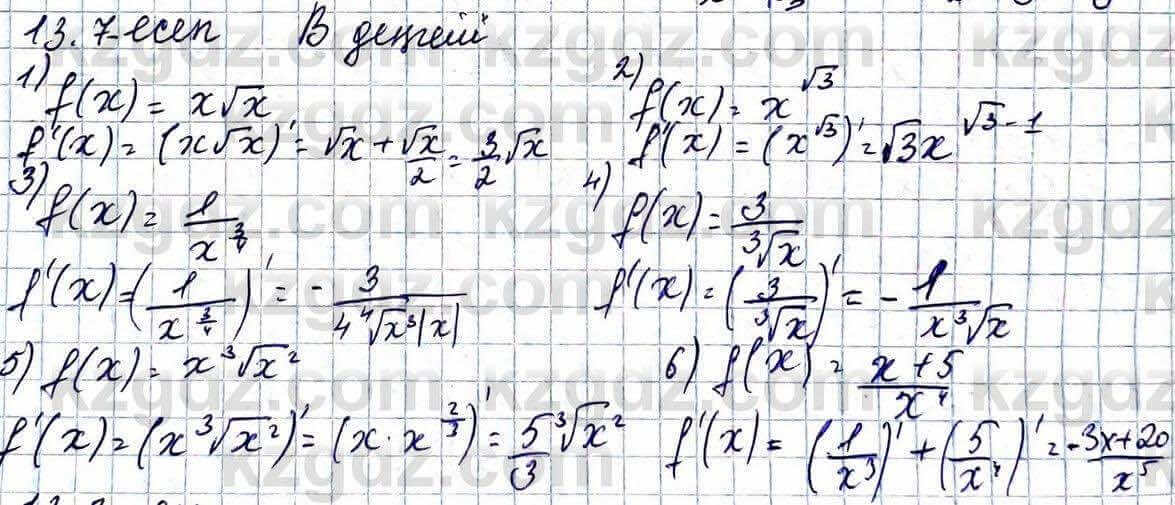 13.7-есеп В деңгей
1) f(x) = x√x
f'(x) = (x√x)' = √x + √x/2 = 3/2 √x
2) f(x) = x^√3
f'(x) = (x^√3)' = √3x^(√3-1)
3) f(x) = 1/x^(3/4)
f'(x) = (1/x^(3/4))' = - 3/(4 ⁴√x³|x|)
4) f(x) = 3/³√x
f'(x) = (3/³√x)' = - 1/(x ³√x)
5) f(x) = x ³√x²
f'(x) = (x ³√x²)' = (x · x^(2/3))' = 5/3 ³√x²
6) f(x) = (x+5)/x⁴
f'(x) = (1/x³)' + (5/x⁴)' = - (3x+20)/x⁵
kzgdz.com